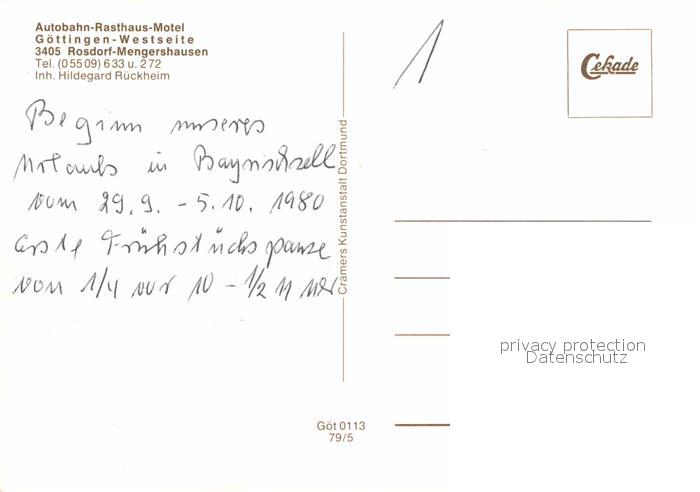 Autobahn-Rasthaus-Motel
Göttingen-Westseite
3405 Rosdorf-Mengershausen
Tel. (05509) 633 u. 272
Inh. Hildegard Rückheim
1
Cekade
Beginn unseres
Urlaubs in Bayrischzell
vom 29.9. - 5.10. 1980
erste Frühstückspause
von 1/4 vor 10 - 1/2 11 Uhr
Cramers Kunstanstalt Dortmund
privacy protection
Datenschutz
Göt 0113
79/5